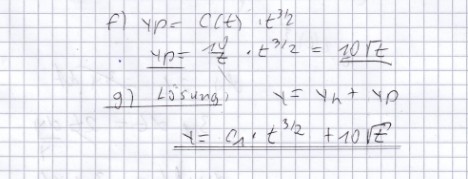 f) yp = C(t) · t^3/2
yp = 10/t · t^3/2 = 10√t
g) Lösung: y = yh + yp
y = C1 · t^3/2 + 10√t